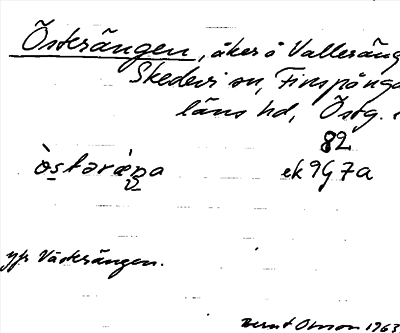 Österängen, åker å Valleräng
Skedevi sn, Finspånga
läns hd, Östg.
82
òstəræŋa ek 9G7a
jfr Västerängen.
Bernt Olsson 1963